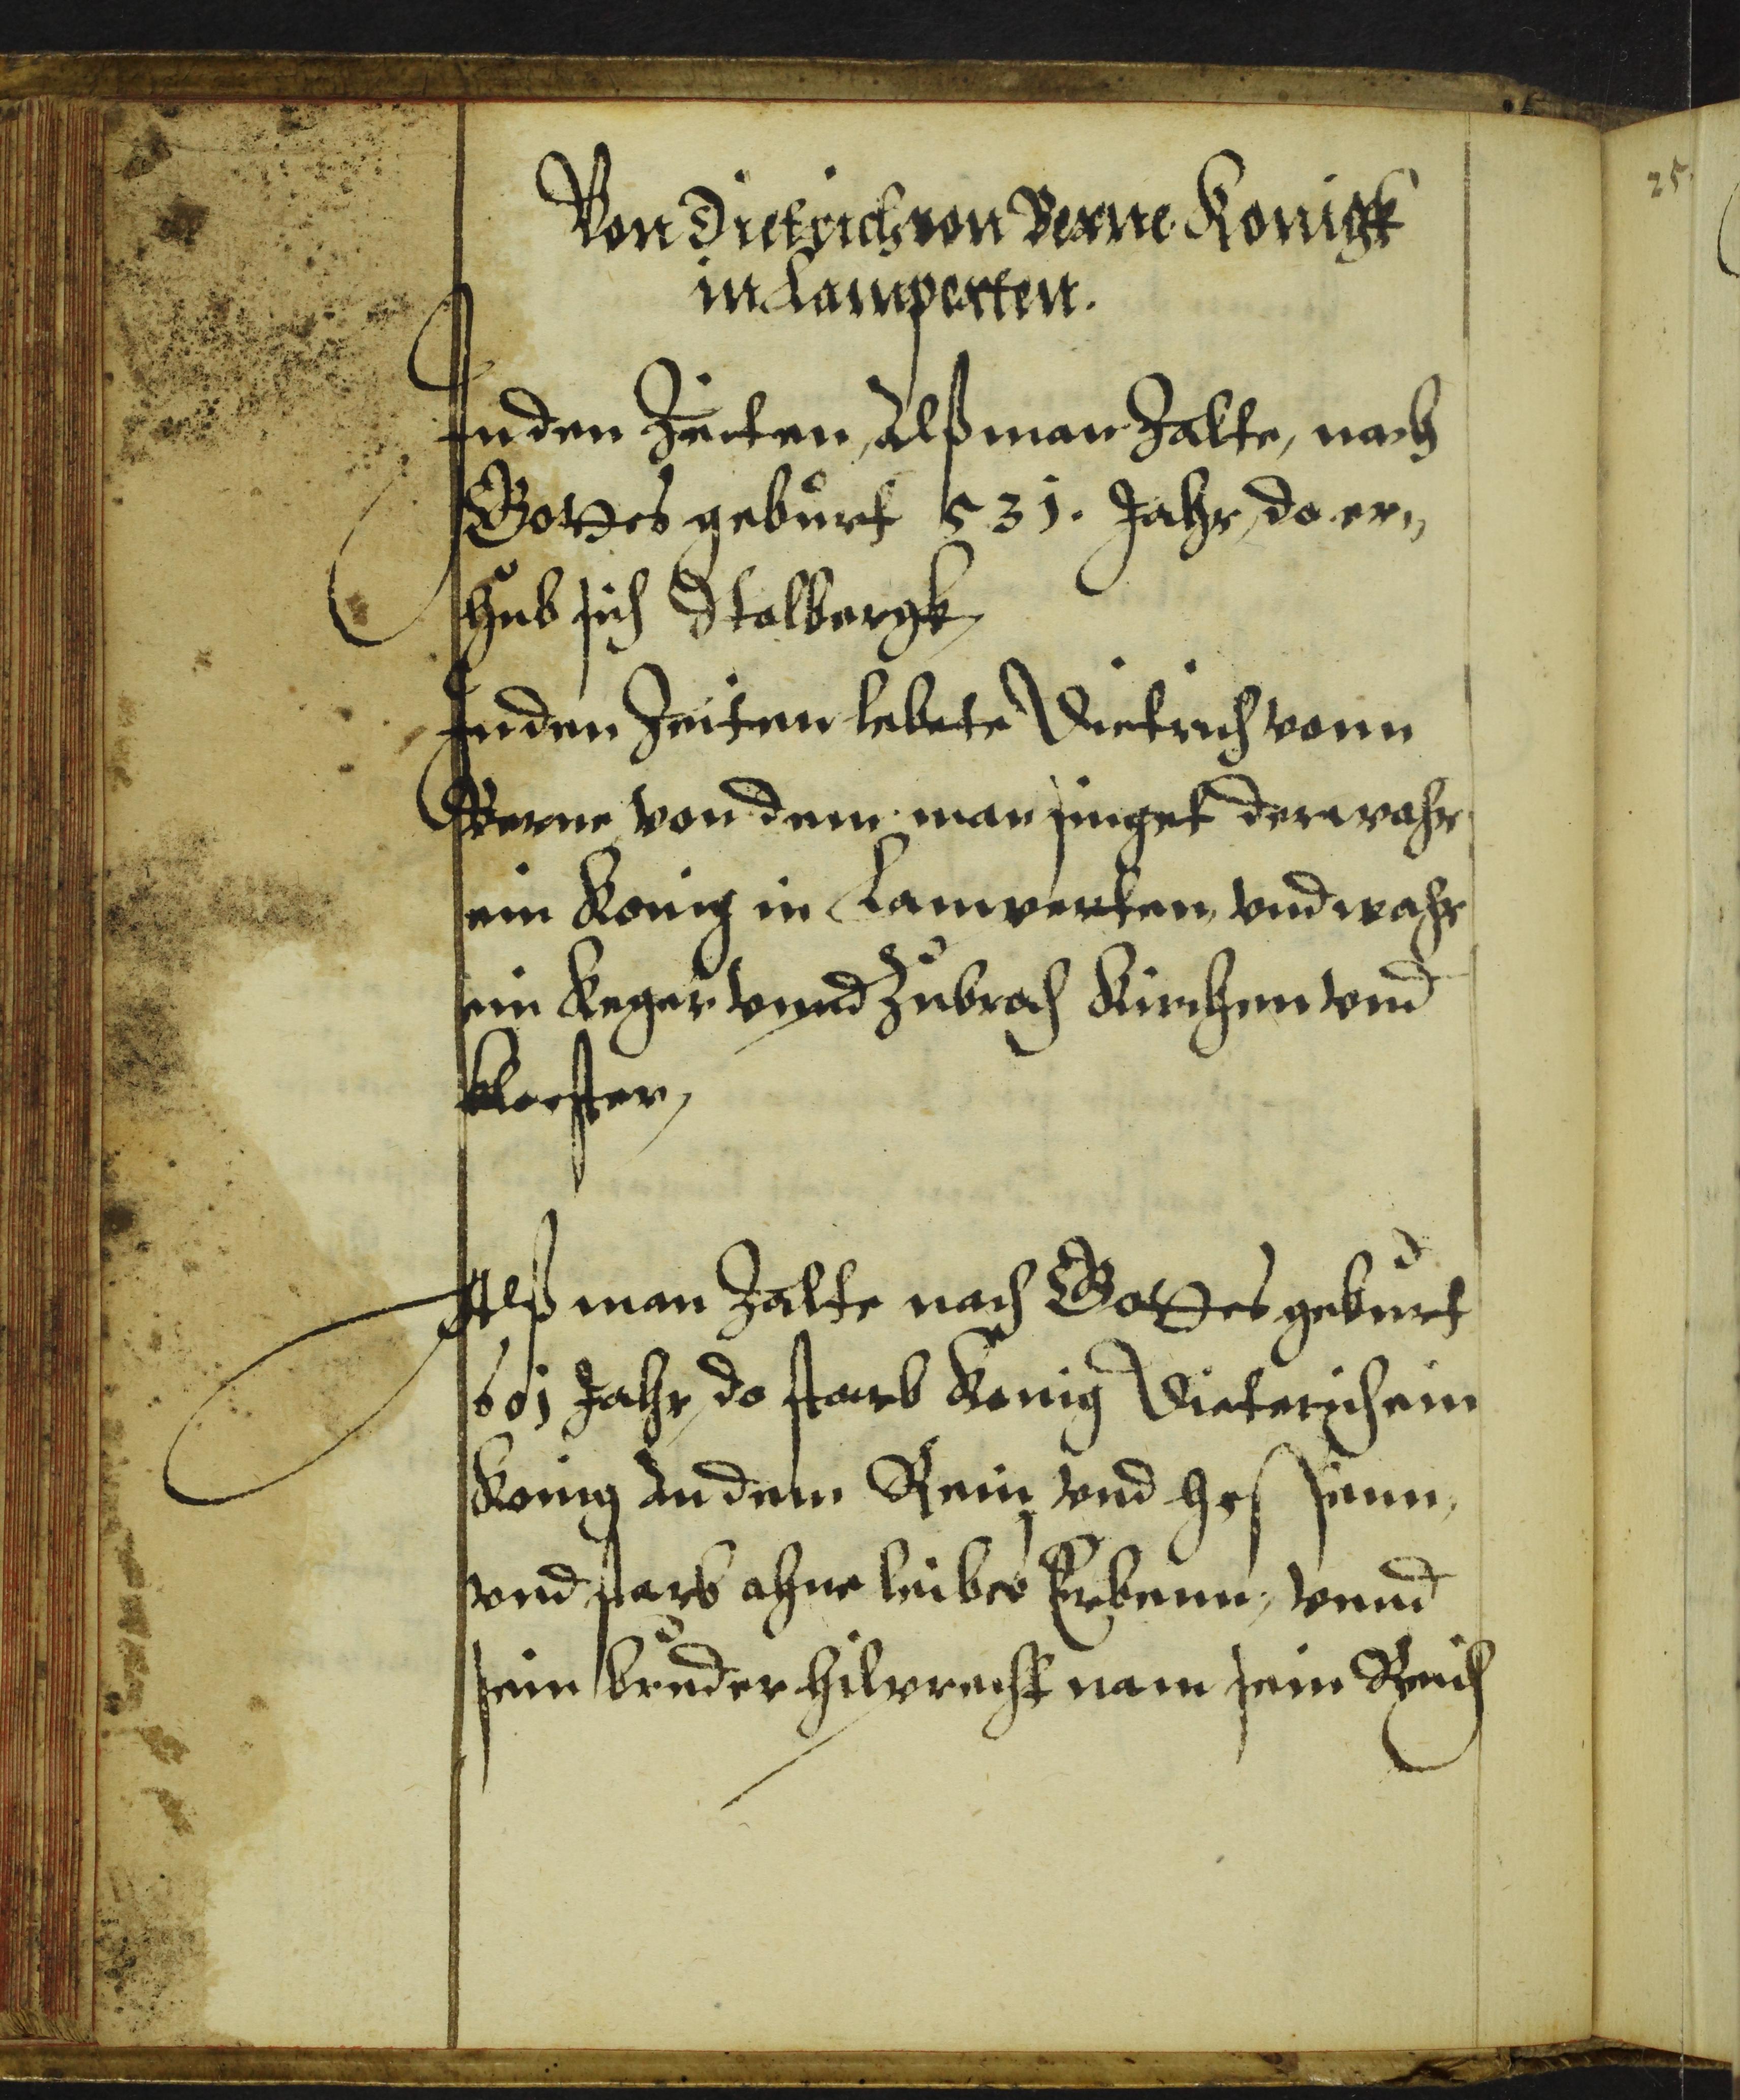 Von Dietrich von Berne Konigk
in Lamperten.
In den Zeiten, Alß man Zalte, nach
Gottes gebuͦrt 531. Jahr, do er„
huͦb sich Stalbergk,
In den Zeiten lebete Dietrich vonn
Berne, von dem man singet der wahr
ein Konig in Lamperten, vnd wahr
ein Keᵹer vnnd Zuͦbrach Kirchen vnd
kloester,
Alß man Zalte nach Gottes gebuͦrt
601 Jahr, do starb Konig Dieterich ein
Konig An dem Rein vnd Hessenn,
vnd starb ohne leibes Erbenn, vnnd
sein bruͦder Hilprecht nam sein Reich
25.